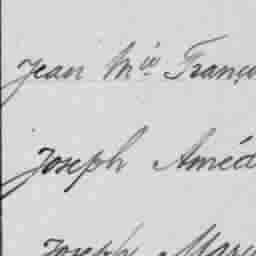 Jean Mie Franço
Joseph Améd
Joseph Mari